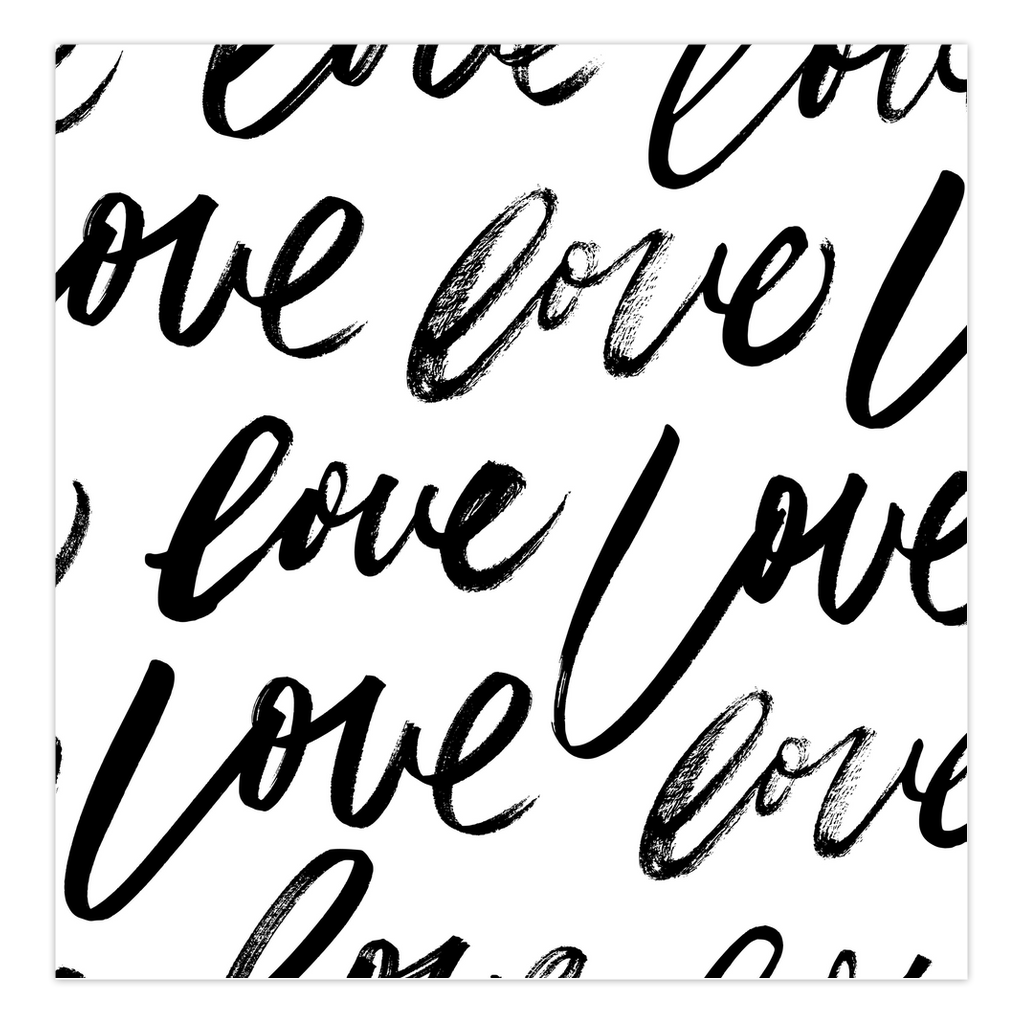 love love
ove love L
love love
Love love
love love